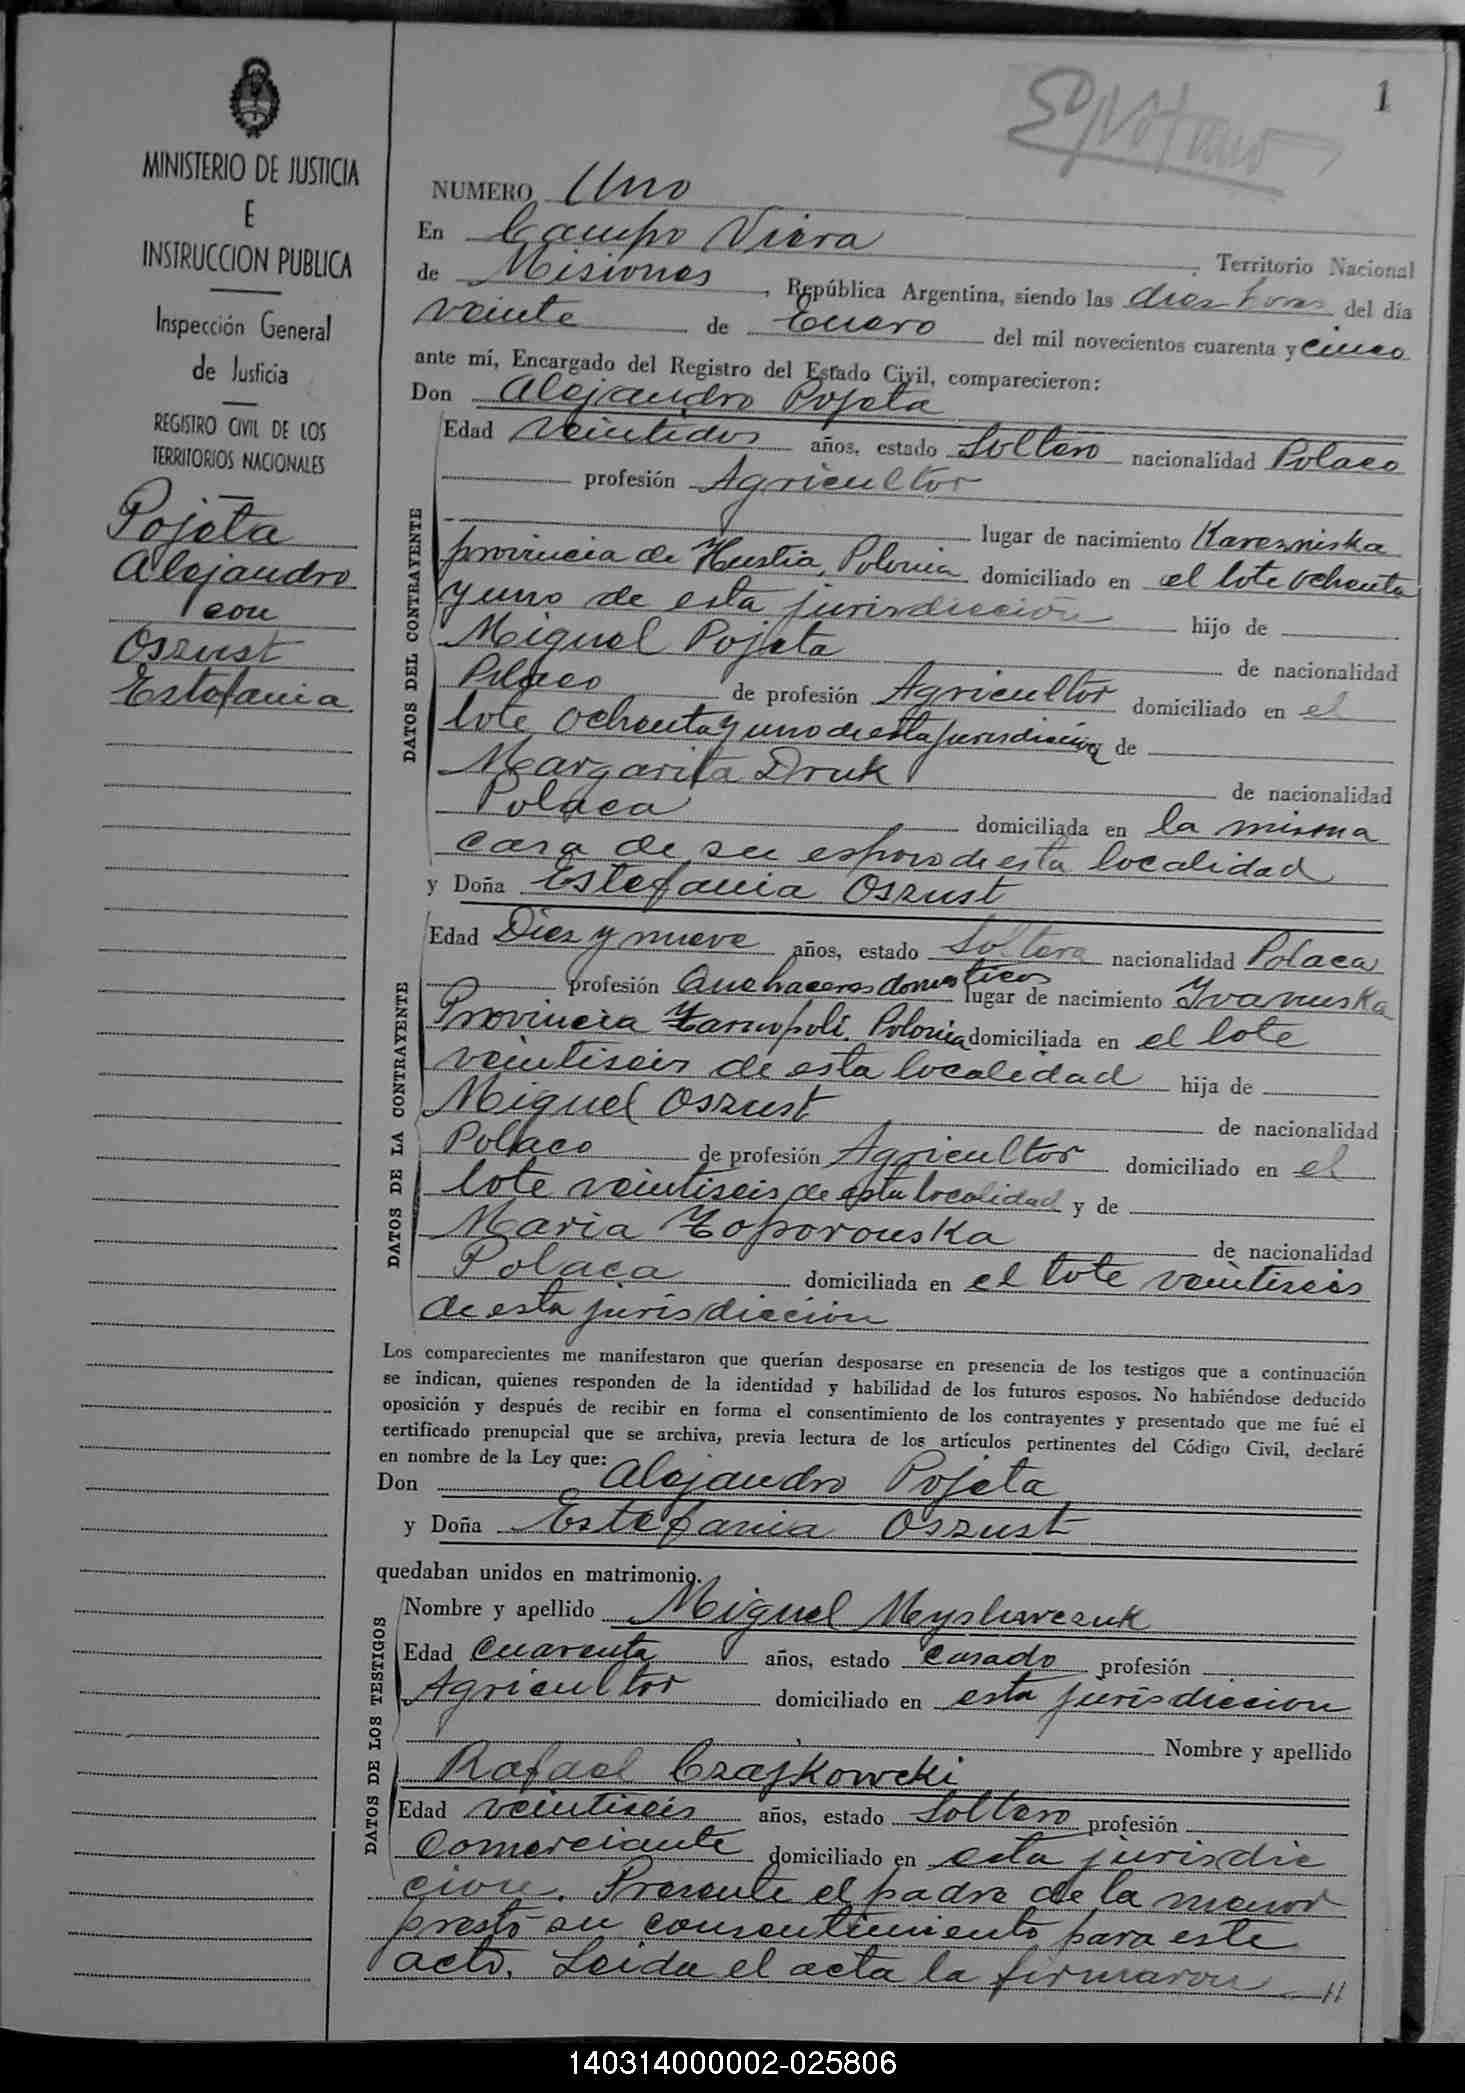 1
MINISTERIO DE JUSTICIA
E
INSTRUCCION PUBLICA
Inspección General
de Justicia
REGISTRO CIVIL DE LOS
TERRITORIOS NACIONALES
Pojeta
Alejandro
con
Oszust
Estefania
NUMERO Uno
En Campo Viera, Territorio Nacional
de Misiones, República Argentina, siendo las diez horas del día
veinte de Enero del mil novecientos cuarenta y cinco
ante mí, Encargado del Registro del Estado Civil, comparecieron:
Don Alejandro Pojeta
DATOS DEL CONTRAYENTE
Edad veintidos años, estado Soltero nacionalidad Polaco
profesión Agricultor
lugar de nacimiento Karezniska
provincia de Hustia, Polonia domiciliado en el lote ochenta
y uno de esta jurisdicción hijo de
Miguel Pojeta de nacionalidad
Polaco de profesión Agricultor domiciliado en el
lote ochenta y uno de esta jurisdiccion y de
Margarita Druk de nacionalidad
Polaca domiciliada en la misma
casa de su esposo de esta localidad
y Doña Estefania Oszust
DATOS DE LA CONTRAYENTE
Edad Diez y nueve años, estado Soltera nacionalidad Polaca
profesión Quehaceres domesticos lugar de nacimiento Yvanuska
Provincia Tarnopoli, Polonia domiciliada en el lote
veintiseis de esta localidad hija de
Miguel Oszust de nacionalidad
Polaco de profesión Agricultor domiciliado en el
lote veintiseis de esta localidad y de
Maria Toporouska de nacionalidad
Polaca domiciliada en el lote veintiseis
de esta jurisdiccion
Los comparecientes me manifestaron que querían desposarse en presencia de los testigos que a continuación
se indican, quienes responden de la identidad y habilidad de los futuros esposos. No habiéndose deducido
oposición y después de recibir en forma el consentimiento de los contrayentes y presentado que me fué el
certificado prenupcial que se archiva, previa lectura de los artículos pertinentes del Código Civil, declaré
en nombre de la Ley que:
Don Alejandro Pojeta
y Doña Estefania Oszust
quedaban unidos en matrimonio.
DATOS DE LOS TESTIGOS
Nombre y apellido Miguel
Edad Cuarenta años, estado casado profesión
Agricultor domiciliado en esta jurisdiccion
Nombre y apellido
Rafael Czajkowcki
Edad veintiseis años, estado Soltero profesión
Comerciante domiciliado en esta jurisdic
cion. Presente el padre de la menor
prestó su consentimiento para este
acto. Leida el acta la firmaron //
140314000002-025806